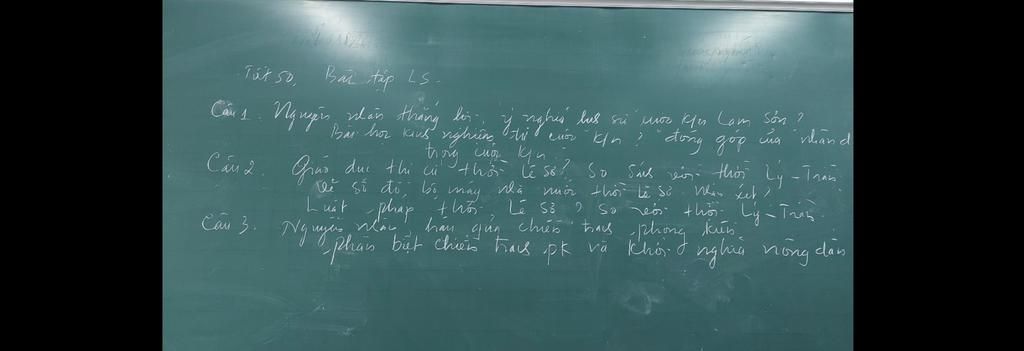 Tiết 50. Bài tập LS.
Câu 1. Nguyên nhân thắng lợi, ý nghĩa lịch sử cuộc k/n Lam Sơn?
Bài học kinh nghiệm từ cuộc k/n? đóng góp của nhân d
trong cuộc k/n.
Câu 2. Giáo dục thi cử thời Lê Sơ? So sánh với thời Lý - Trần
Vẽ sơ đồ bộ máy nhà nước thời Lê Sơ Nhận xét?
Luật pháp thời Lê Sơ? So với thời Lý - Trần.
Câu 3. Nguyên nhân, hậu quả chiến tranh phong kiến.
phân biệt chiến tranh pk và khởi nghĩa nông dân